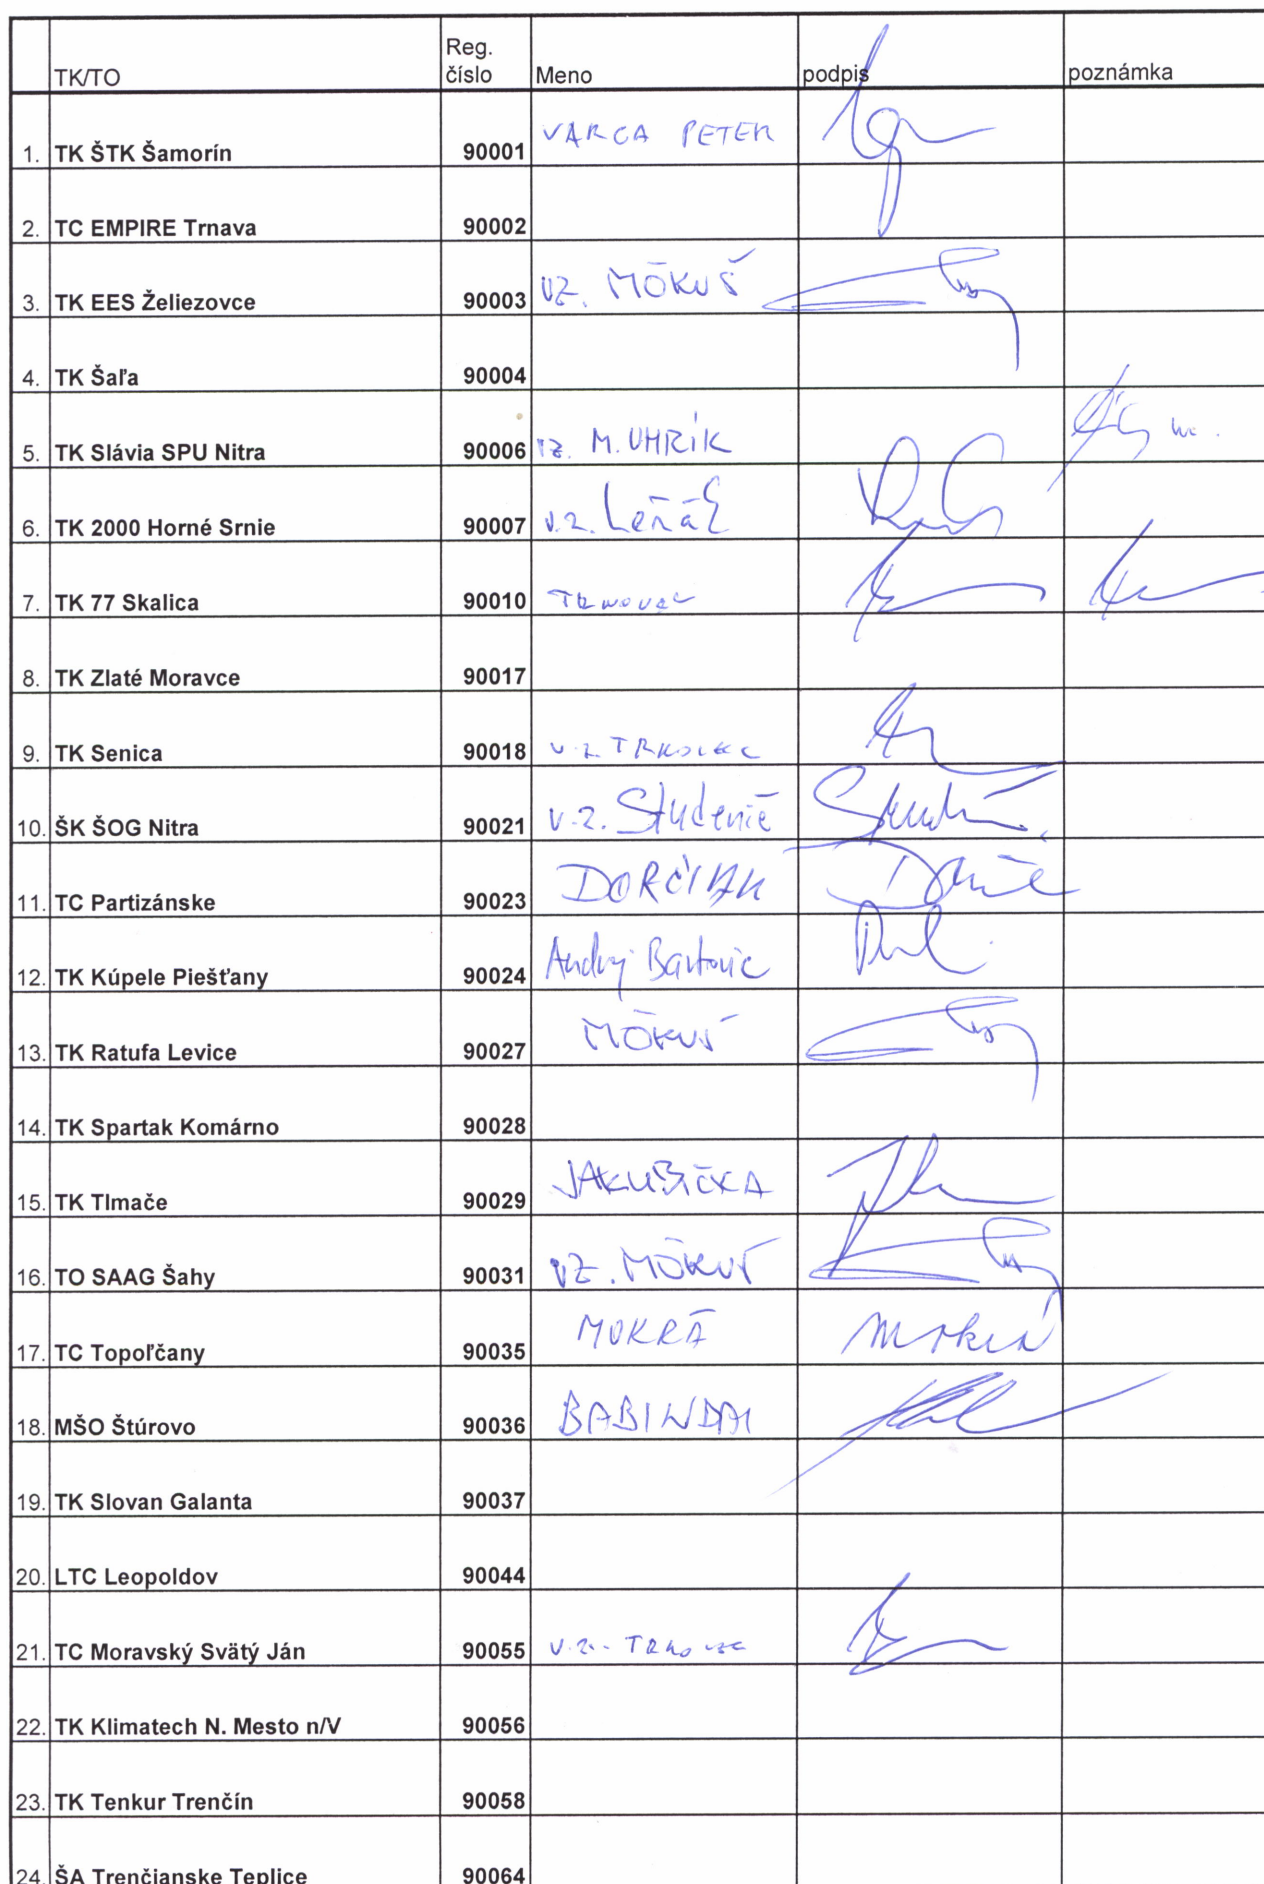 TK/TO Reg. číslo Meno podpis poznámka
1. TK ŠTK Šamorín 90001 VARGA PETER
2. TC EMPIRE Trnava 90002
3. TK EES Želiezovce 90003 VZ. MÖKUŠ
4. TK Šaľa 90004
5. TK Slávia SPU Nitra 90006 VZ. M. UHRÍK
6. TK 2000 Horné Srnie 90007 v.z.
7. TK 77 Skalica 90010 TRNOVEC
8. TK Zlaté Moravce 90017
9. TK Senica 90018 v.z. TRNOVEC
10. ŠK ŠOG Nitra 90021 v.z. Studenič
11. TC Partizánske 90023 DORČIAK
12. TK Kúpele Piešťany 90024 Andrej Bartovic
13. TK Ratufa Levice 90027 MÖKUŠ
14. TK Spartak Komárno 90028
15. TK Tlmače 90029 JAKUBIČKA
16. TO SAAG Šahy 90031 VZ. MÖKUŠ
17. TC Topoľčany 90035 MOKRÁ Mokrá
18. MŠO Štúrovo 90036
19. TK Slovan Galanta 90037
20. LTC Leopoldov 90044
21. TC Moravský Svätý Ján 90055 v.z. TRNOVEC
22. TK Klimatech N. Mesto n/V 90056
23. TK Tenkur Trenčín 90058
24. ŠA Trenčianske Teplice 90064